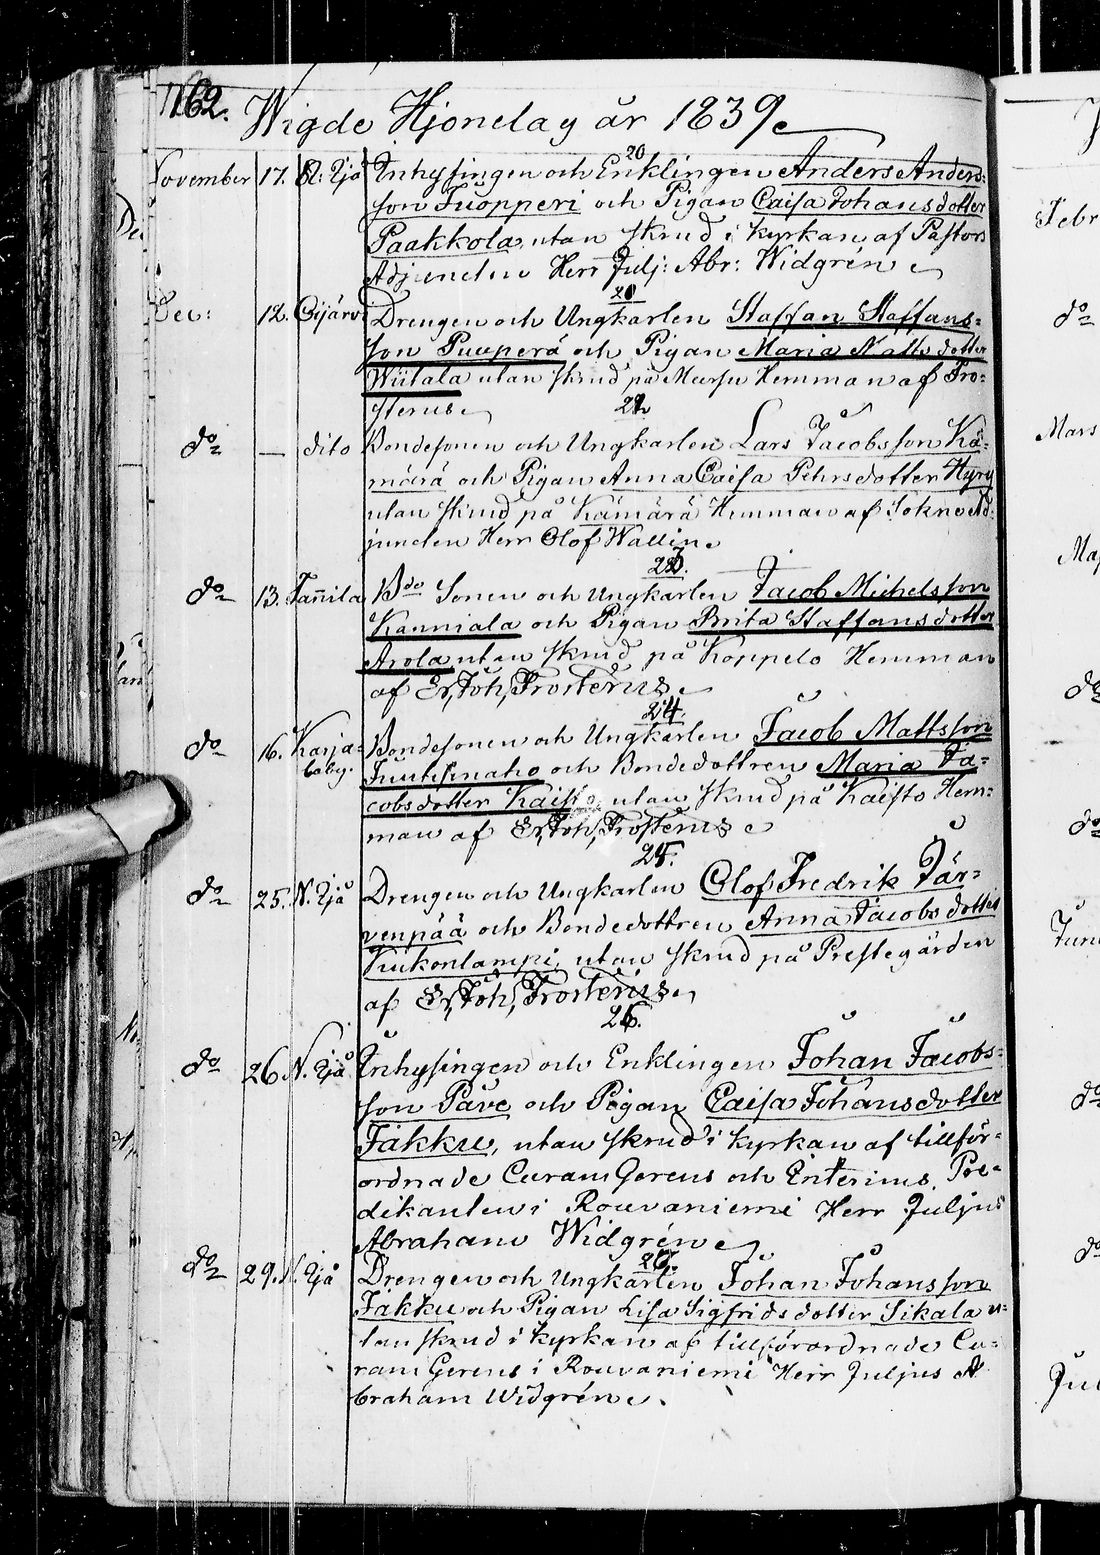 162. Wigde Hjonelag år 1839
20
November 17. Ö: Kjå Inhysingen och Enklingen Anders Anders=
son Tuopperi och Pigan Caisa Johansdotter
Paakkola utan skrud i kyrkan af Pastors
Adjuncten Herr Julj: Abr: Widgrén
21
Dec: 12. Oijärvi Drengen och Ungkarlen Staffan Staffans=
son Puuperä och Pigan Maria Mattsdotter
Wiitala utan skrud på Hemman af Fro=
sterus
22
do — dito Bondesonen och Ungkarlen Lars Jacobsson Kä=
märä och Pigan Anna Caisa Pehrsdotter Hyry
utan skrud på Kämärä Hemman af Sokne Ad=
juncten Herr Olof Wallin
23.
do 13. Tannila Bdo Sonen och Ungkarlen Jacob Michelsson
Kanniala och Pigan Brita Staffansdotter
Arola utan skrud på Koppelo Hemman
af Er, Joh, Frosterus
24.
do 16. Karja=
laby. Bondesonen och Ungkarlen Jacob Mattsson
och Bondedottren Maria Ja=
cobsdotter Kaisto, utan skrud på Kaisto Hem=
man af Er, Joh, Frosterus
25.
do 25. N. Kjå Drengen och Ungkarlen Olof Fredrik Jär=
venpää och Bondedottren Anna Jacobsdotter
Kiukonlampi, utan skrud på Prestegården
af Er, Joh, Frosterus
26.
do 26 N. Kjå Inhysingen och Enklingen Johan Jacobs=
son Pave och Pigan Caisa Johansdotter
Jakku, utan skrud i kyrkan af tillför=
ordnade Curam Gerens och Enterims, Pre=
dikanten i Rouvaniemi Herr Juljus
Abraham Widgrén
27.
do 29. N. Kjå Drengen och Ungkarlen Johan Johansson
Jakku och Pigan Lisa Sigfridsdotter Sikala u=
tan skrud i kyrkan af tillförordnade Cu=
ram Gerens i Rouvaniemi Herr Juljus A
braham Widgrén.
Febr
do
Mars
do
do
do
do